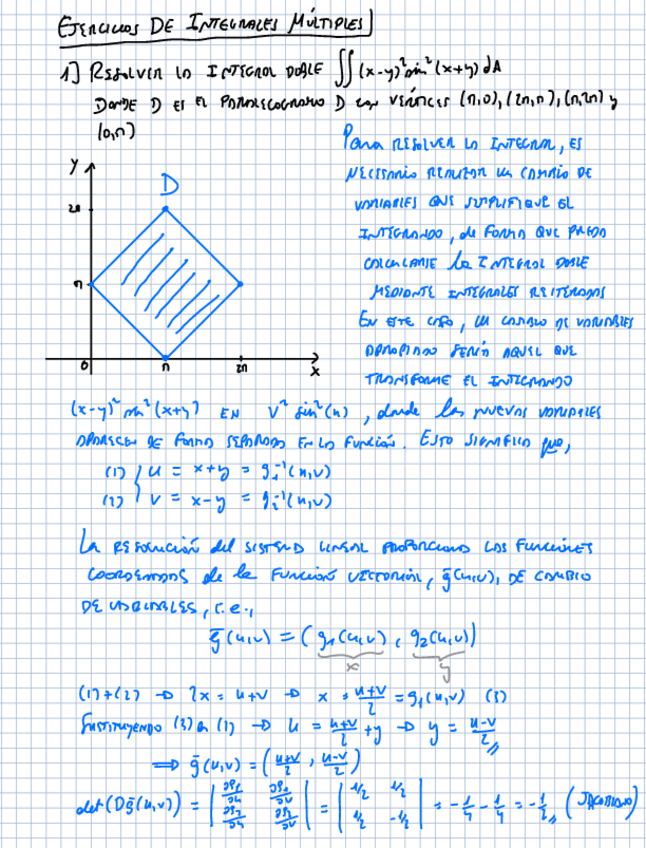 EJERCICIOS DE INTEGRALES MÚLTIPLES
1] RESOLVER LA INTEGRAL DOBLE ∬(x-y)² sin²(x+y) dA
DONDE D ES EL PARALELOGRAMO D CON VÉRTICES (π,0), (2π,π), (π,2π) y
(0,π)
Y
D
2π
π
0
π
2π
X
Para RESOLVER LA INTEGRAL, ES
NECESARIO REALIZAR UN CAMBIO DE
VARIABLES QUE SIMPLIFIQUE EL
INTEGRANDO, de FORMA QUE PUEDA
CALCULARSE la INTEGRAL DOBLE
MEDIANTE INTEGRALES REITERADAS
EN ESTE CASO, UN CAMBIO DE VARIABLES
APROPIADO SERÍA AQUEL QUE
TRANSFORME EL INTEGRANDO
(x-y)² sin²(x+y) EN v² sin²(u), donde las nuevas VARIABLES
APARECEN DE FORMA SEPARADA EN LA FUNCIÓN. ESTO SIGNIFICA que,
(1) u = x+y = g₁⁻¹(u,v)
(2) v = x-y = g₂⁻¹(u,v)
LA RESOLUCIÓN del SISTEMA LINEAL PROPORCIONA LAS FUNCIONES
COORDENADAS de la FUNCIÓN VECTORIAL, g̅(u,v), DE CAMBIO
DE VARIABLES, i.e.,
g̅(u,v) = (g₁(u,v), g₂(u,v))
x y
(1)+(2) → 2x = u+v → x = (u+v)/2 = g₁(u,v) (3)
SUSTITUYENDO (3) en (1) → u = (u+v)/2 + y → y = (u-v)/2 //
⟹ g̅(u,v) = ((u+v)/2, (u-v)/2)
det(Dg̅(u,v)) = |∂g₁/∂u ∂g₁/∂v; ∂g₂/∂u ∂g₂/∂v| = |1/2 1/2; 1/2 -1/2| = -1/4 - 1/4 = -1/2 // (JACOBIANO)